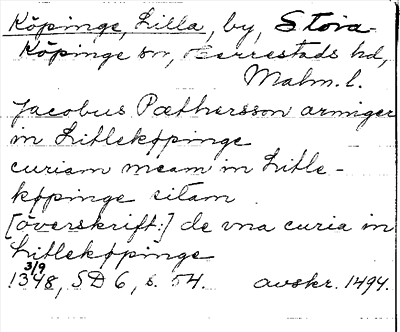 Köpinge, Lilla, by, Stora-
Köpinge sn, Herrestads hd,
Malm. l.
Jacobus Pæthersson armiger
in Litleköpinge
curiam meam in Litle-
køpinge sitam
[överskrift:] de vna curia in
Litlekøpinge
3/9
1348, SD 6, s. 54. avskr. 1494.